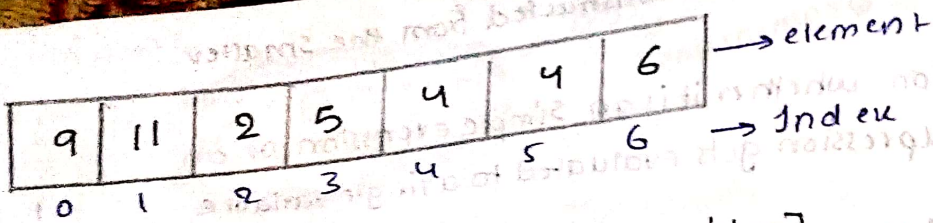 9 11 2 5 4 4 6 → element
0 1 2 3 4 5 6 → Index